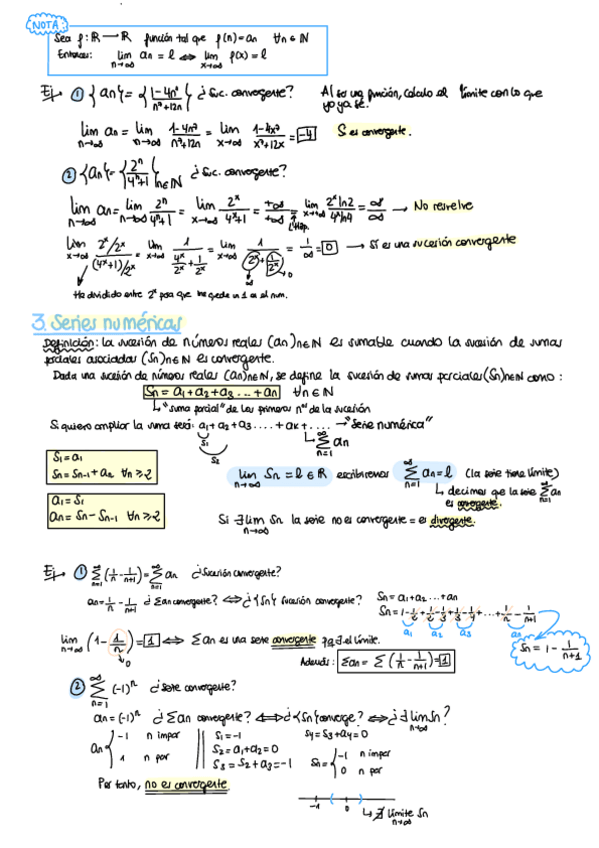 NOTA:
Sea f: ℝ → ℝ función tal que f(n) = an ∀n ∈ ℕ
Entonces: lim n→∞ an = l ⟺ lim x→∞ f(x) = l
Ej → ① {an} = {1-4n³/n³+12n} ¿Suc. convergente? Al ser una función, calculo el límite con lo que yo ya sé.
lim n→∞ an = lim n→∞ 1-4n³/n³+12n = lim x→∞ 1-4x³/x³+12x = -4 Sí es convergente.
② {an} = {2ⁿ/4ⁿ+1} n∈ℕ ¿Suc. convergente?
lim n→∞ an = lim n→∞ 2ⁿ/4ⁿ+1 = lim x→∞ 2ˣ/4ˣ+1 = +∞/+∞ = lim x→∞ 2ˣ ln2/4ˣ ln4 = ∞/∞ → No resuelve
L'Hôp.
lim x→∞ 2ˣ/2ˣ/(4ˣ+1)/2ˣ = lim x→∞ 1/4ˣ/2ˣ + 1/2ˣ = lim x→∞ 1/2ˣ + 1/2ˣ = 1/∞ = 0 → Sí es una sucesión convergente
↳ 0
Ha dividido entre 2ˣ para que me quede un 1 en el num.
3. Series numéricas
Definición: la sucesión de números reales (an)n∈ℕ es sumable cuando la sucesión de sumas
parciales asociadas (Sn)n∈ℕ es convergente.
Dada una sucesión de números reales (an)n∈ℕ, se define la sucesión de sumas parciales (Sn)n∈ℕ como:
Sn = a1+a2+a3...+an ∀n ∈ ℕ
↳ "suma parcial" de los primeros nᵒˢ de la sucesión
Si quiero ampliar la suma será: a1+a2+a3....+ak+.... → "Serie numérica"
S1
S2
↳ ∞ Σ n=1 an
S1 = a1
Sn = Sn-1 + an ∀n ≥ 2
lim n→∞ Sn = l ∈ ℝ escribiremos ∞ Σ n=1 an = l (la serie tiene límite)
↳ decimos que la serie ∞ Σ n=1 an
es convergente.
a1 = S1
an = Sn - Sn-1 ∀n ≥ 2
Si ∄ lim n→∞ Sn la serie no es convergente = es divergente.
Ej → ① ∞ Σ n=1 (1/n - 1/n+1) = ∞ Σ n=1 an ¿Sucesión convergente?
an = 1/n - 1/n+1 ¿Σan convergente? ⟺ ¿{Sn} sucesión convergente?
Sn = a1+a2...+an
Sn = 1 - 1/2 + 1/2 - 1/3 + 1/3 - 1/4 + ... + 1/n - 1/n+1
a1 a2 a3 an
Sn = 1 - 1/n+1
lim n→∞ (1 - 1/n) = 1 ⟺ Σan es una serie convergente pq ∃ el límite.
↳ 0
Además: Σan = Σ(1/n - 1/n+1) = 1
② ∞ Σ n=1 (-1)ⁿ ¿Serie convergente?
an = (-1)ⁿ ¿Σan convergente? ⟺ ¿{Sn} converge? ⟺ ¿∃ lim n→∞ Sn?
an { -1 n impar
1 n par
S1 = -1
S2 = a1+a2 = 0
S3 = S2+a3 = -1
S4 = S3+a4 = 0
Sn = { -1 n impar
0 n par
Por tanto, no es convergente
-1 0
↳ ∄ límite Sn
n→∞